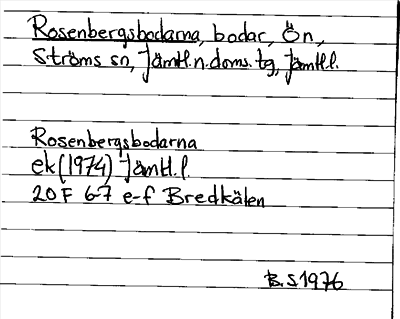 Rosenbergsbodarna, bodar, Ön,
Ströms sn, Jämtl.n.doms.tg, Jämtl.l.
Rosenbergsbodarna
ek (1974) Jämtl.l.
20 F 6-7 e-f Bredkälen
B.S 1976